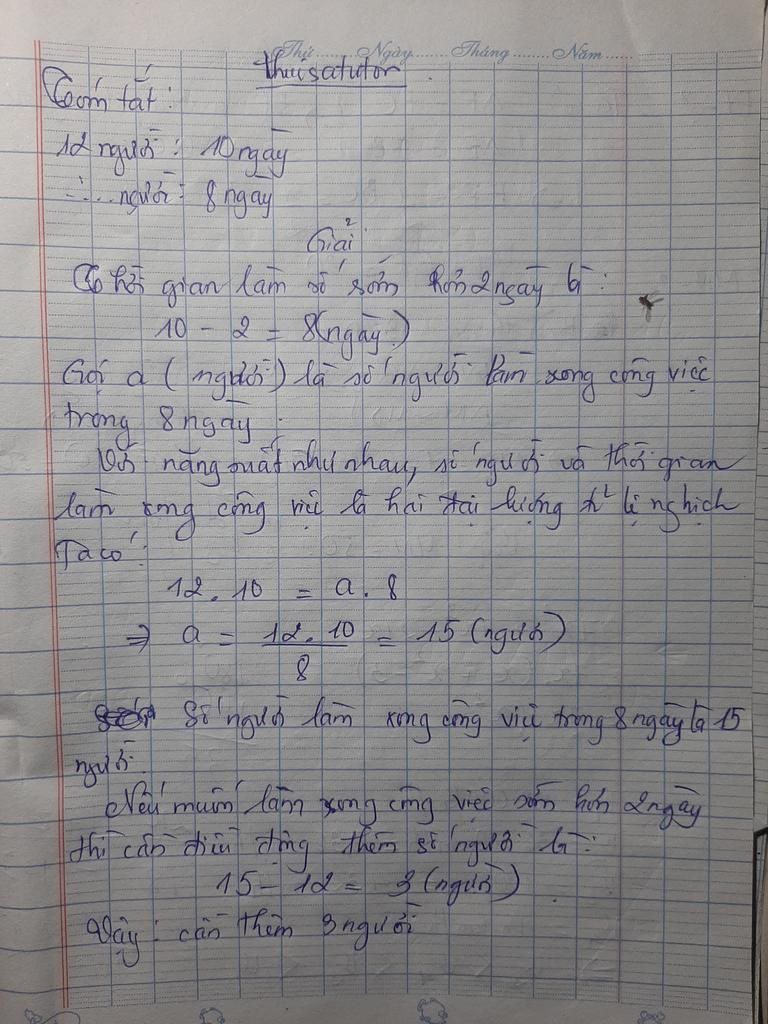 Thứ........Ngày........Tháng........Năm......
thuisatutor
Tóm tắt:
12 người: 10 ngày
... người: 8 ngày
Giải
Thời gian làm số sớm hơn 2 ngày là:
10 - 2 = 8 (ngày)
Gọi a (người) là số người làm xong công việc
trong 8 ngày.
Với năng suất như nhau, số người và thời gian
làm xong công việc là hai đại lượng tỉ lệ nghịch
Ta có:
12 . 10 = a . 8
⇒ a = \frac{12 . 10}{8} = 15 (người)
Số người làm xong công việc trong 8 ngày là 15
người.
Nếu muốn làm xong công việc sớm hơn 2 ngày
thì cần điều động thêm số người là:
15 - 12 = 3 (người)
Vậy: cần thêm 3 người